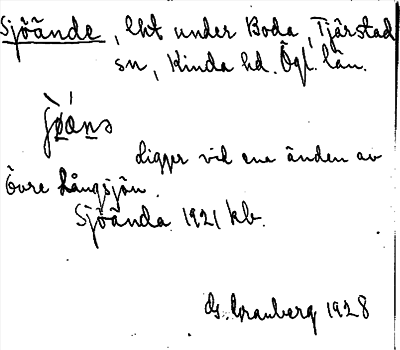 Sjöände, lht under Boda, Tjärstad
sn, Kinda hd. Ögl. län.
Ligger vid ena änden av
Övre Långsjön.
Sjöända 1921 kb.
G. Granberg 1928